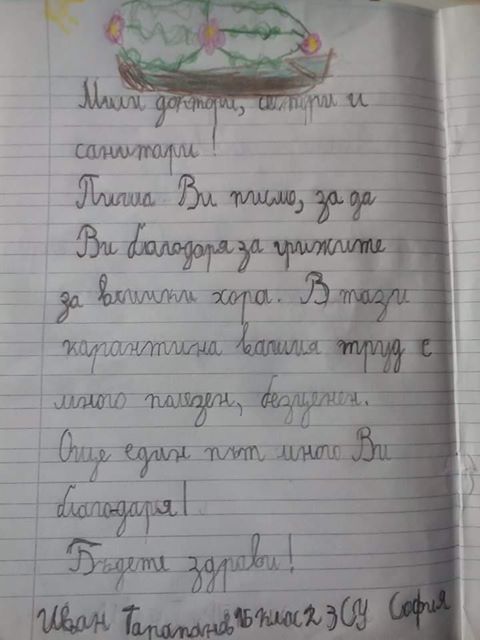 Мили доктори, сестри и
санитари!
Пиша Ви писмо, за да
Ви благодоря за грижите
за всички хора. В тази
карантина вашия труд е
много полезен, безценен.
Още един път много Ви
благодаря!
Бъдете здрави!
Иван Тарапанов 1б клас 23 СУ София